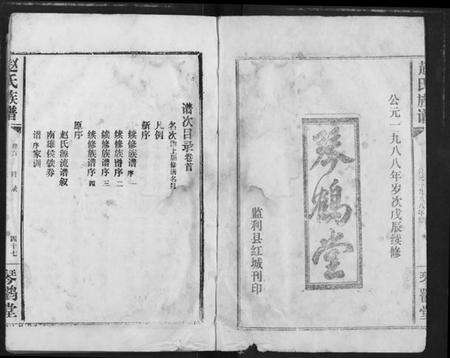 赵氏族谱
公元一九八八年岁次戊辰续修
琴鹤堂
监利县红城刊印
谱次目录卷首
名次
凡例
新序
续修族谱序一
续修族谱序二
续修族谱序三
续修族谱序四
原序
赵氏源流谱叙
南雄侯敕券
谱序家训
赵氏族谱
目录
四十七
琴鹤堂